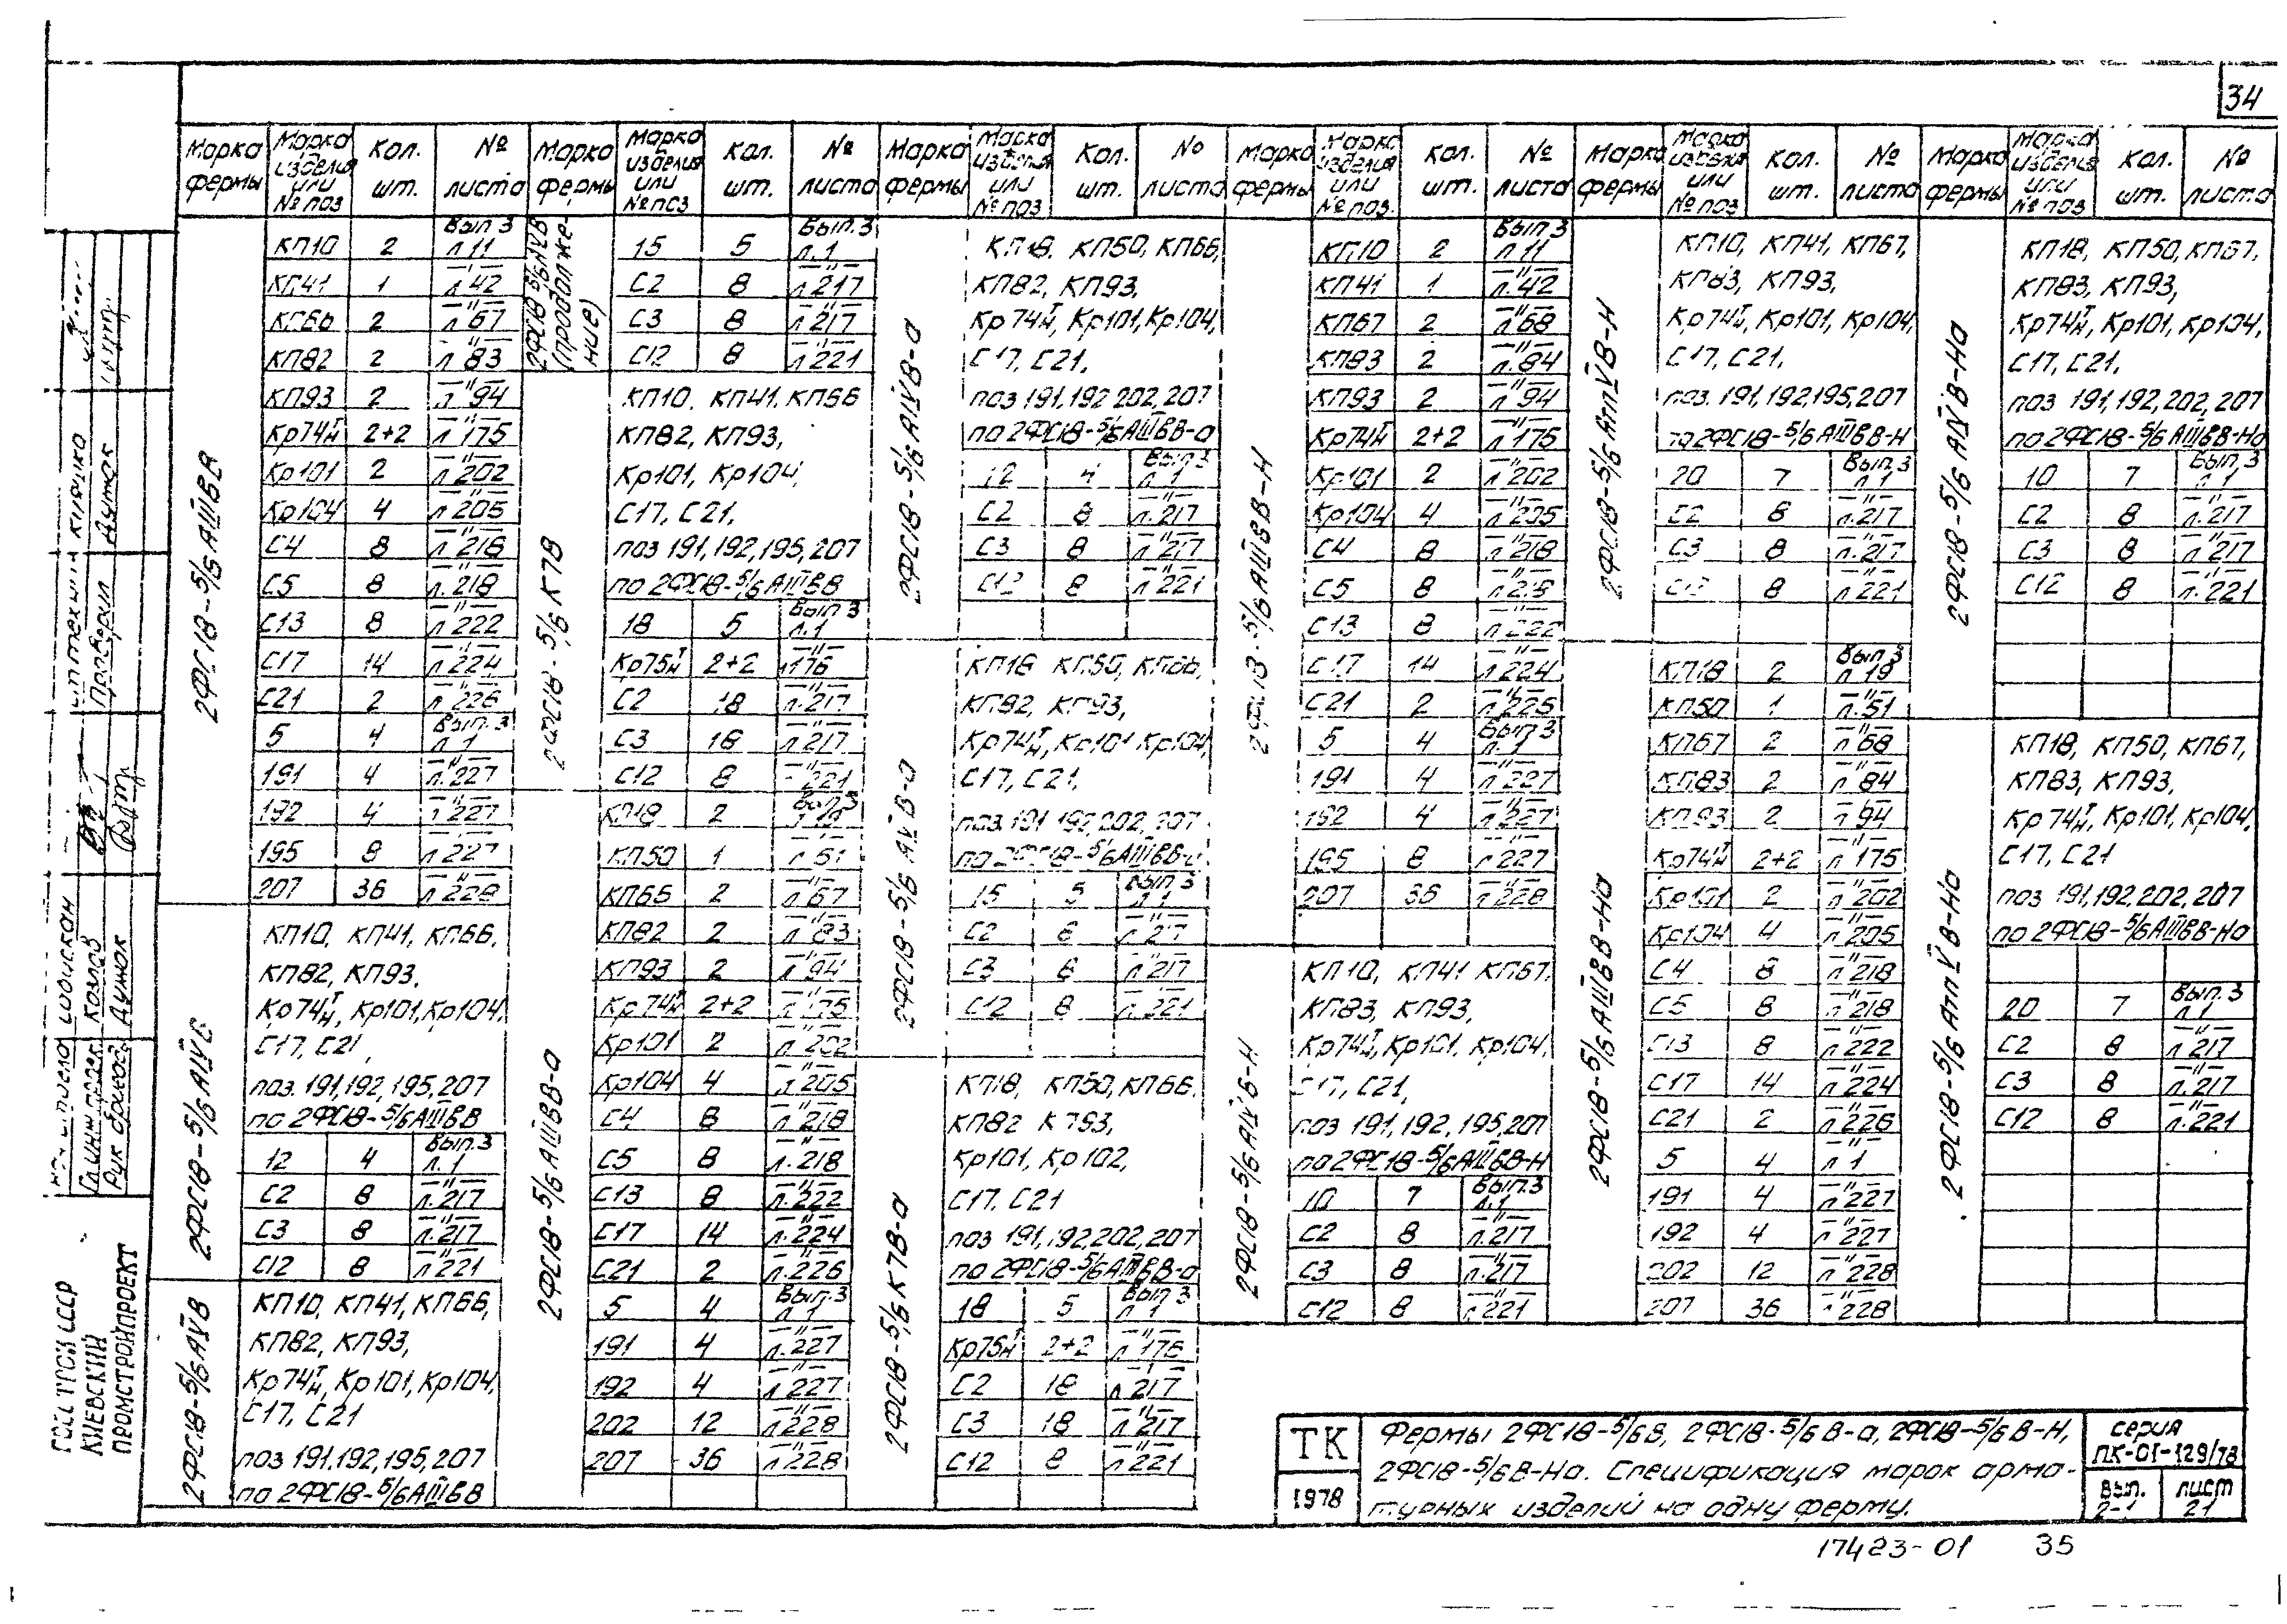 34
Марка фермы | Марка изделия или № поз | Кол. шт. | № листа
2ФС18-5/6 АIIIвВ
КП10 2 Вып 3 л 11
КП41 1 —"— л 42
КП66 2 —"— л 67
КП82 2 —"— л 83
КП93 2 —"— л 94
Кр74Iн 2+2 —"— л 175
Кр101 2 —"— л 202
Кр104 4 —"— л 205
С4 8 —"— л 218
С5 8 —"— л.218
С13 8 —"— л 222
С17 14 —"— л 224
С21 2 —"— л 226
5 4 Вып. 3 л 1
191 4 —"— л.227
192 4 —"— л 227
195 8 —"— л 227
207 36 —"— л 228
2ФС18-5/6 АIVВ
КП10, КП41, КП66,
КП82, КП93,
Кр74Iн, Кр101, Кр104,
С17, С21,
поз. 191, 192, 195, 207
по 2ФС18-5/6АIIIвВ
12 4 Вып.3 л.1
С2 8 —"— л.217
С3 8 —"— л.217
С12 8 —"— л 221
2ФС18-5/6 АVВ
КП10, КП41, КП66,
КП82, КП93,
Кр74Iн, Кр101, Кр104,
С17, С21
поз 191, 192, 195, 207
по 2ФС18-5/6АIIIвВ
Марка фермы | Марка изделия или № поз | Кол. шт. | № листа
2ФС18 5/6 АVВ (продолже-
ние)
15 5 Вып. 3 л.1
С2 8 —"— л 217
С3 8 —"— л 217
С12 8 —"— л 221
2ФС18-5/6 К7В
КП10, КП41, КП66
КП82, КП93,
Кр101, Кр104,
С17, С21,
поз 191, 192, 195, 207
по 2ФС18-5/6АIIIвВ
18 5 Вып 3 л.1
Кр75Iн 2+2 —"— л 176
С2 18 —"— л.217
С3 18 —"— л 217
С12 8 —"— 221
2ФС18-5/6 АIIIвВ-а
КП18 2 Вып 3
КП50 1 —"— л 51
КП66 2 —"— л 67
КП82 2 —"— л 83
КП93 2 —"— л 94
Кр74Iн 2+2 —"— л 175
Кр101 2 —"— л 202
Кр104 4 —"— л 205
С4 8 —"— л 218
С5 8 —"— л.218
С13 8 —"— л.222
С17 14 —"— л.224
С21 2 —"— л.226
5 4 Вып.3 л 1
191 4 —"— л.227
192 4 —"— л 227
202 12 —"— л 228
207 36 —"— л 228
Марка фермы | Марка изделия или № поз | Кол. шт. | № листа
2ФС18-5/6 АIVВ-а
КП18, КП50, КП66,
КП82, КП93,
Кр74Iн, Кр101, Кр104,
С17, С21,
поз 191, 192 202, 207
по 2ФС18-5/6АIIIвВ-а
12 4 Вып.3 л 1
С2 8 —"— л.217
С3 8 —"— л 217
С12 8 —"— л 221
2ФС18-5/6 АVВ-а
КП18 КП50, КП66,
КП82, КП93,
Кр74Iн, Кр101 Кр104,
С17, С21,
поз. 191 192, 202, 207
по 2ФС18-5/6АIIIвВ-а
15 5 Вып 3 л 1
С2 8 —"— л 217
С3 8 —"— л 217
С12 8 —"— л 221
2ФС18-5/6 К7В-а
КП18, КП50, КП66,
КП82 КП93,
Кр101, Кр102,
С17, С21
поз 191, 192, 202, 207
по 2ФС18-5/6АIIIвВ-а
18 5 Вып 3 л 1
Кр75Iн 2+2 —"— л 176
С2 18 —"— л 217
С3 18 —"— л 217
С12 8 —"— л 221
Марка фермы | Марка изделия или № поз. | Кол. шт. | № листа
2ФС18-5/6 АIIIвВ-Н
КП10 2 Вып 3 л 11
КП41 1 —"— л.42
КП67 2 —"— л 68
КП83 2 —"— л.84
КП93 2 —"— л 94
Кр74Iн 2+2 —"— л 175
Кр101 2 —"— л 202
Кр104 4 —"— л 205
С4 8 —"— л 218
С5 8 —"— л 218
С13 8 —"— л 222
С17 14 —"— л 224
С21 2 —"—
5 4 Вып 3 л. 1
191 4 —"— л 227
192 4 —"— л 227
195 8 —"— л 227
207 36 —"— л 228
2ФС18-5/6 АIVВ-Н
КП10, КП41 КП67,
КП83, КП93,
Кр74Iн, Кр101, Кр104,
С17, С21,
поз 191, 192, 195, 207
по 2ФС18-5/6АIIIвВ-Н
10 7 Вып.3 л.1
С2 8 —"— л.217
С3 8 —"— л.217
С12 8 —"— л 221
Марка фермы | Марка изделия или № поз | Кол. шт. | № листа
2ФС18-5/6 АтVВ-Н
КП10, КП41, КП67,
КП83, КП93,
Кр74Iн, Кр101, Кр104,
С17, С21,
поз. 191, 192, 195, 207
по 2ФС18-5/6 АIIIвВ-Н
20 7 Вып. 3 л 1
С2 8 —"— л.217
С3 8 —"— л.217
С12 8 —"— л 221
2ФС18-5/6 АIIIвВ-На
КП18 2 Вып 3 л 19
КП50 1 —"— л.51
КП67 2 —"— л 68
КП83 2 —"— л 84
КП93 2 —"— л 94
Кр74Iн 2+2 —"— л 175
Кр101 2 —"— л 202
Кр104 4 —"— л 205
С4 8 —"— л 218
С5 8 —"— л 218
С13 8 —"— л 222
С17 14 —"— л 224
С21 2 —"— л 226
5 4 —"— л 1
191 4 —"— л 227
192 4 —"— л 227
202 12 —"— л 228
207 36 —"— 228
Марка фермы | Марка изделия или № поз | Кол. шт. | № листа
2ФС18-5/6 АIVВ-На
КП18, КП50, КП67,
КП83, КП93,
Кр74Iн, Кр101, Кр104,
С17, С21,
поз 191, 192, 202, 207
по 2ФС18-5/6 АIIIвВ-На
10 7 Вып. 3 л. 1
С2 8 —"— л.217
С3 8 —"— л 217
С12 8 —"— л.221
2ФС18-5/6 АтVВ-На
КП18, КП50, КП67,
КП83, КП93,
Кр74Iн, Кр101, Кр104,
С17, С21
поз 191, 192, 202, 207
по 2ФС18-5/6АIIIвВ-На
20 7 Вып. 3 л 1
С2 8 —"— л 217
С3 8 —"— л 217
С12 8 —"— л.221
Госстрой СССР
КИЕВСКИЙ
ПРОМСТРОЙПРОЕКТ
Гл инж проек Козлов
Рук бригад. Дунок
Проверил
ТК
1978
Фермы 2ФС18-5/6В, 2ФС18-5/6В-а, 2ФС18-5/6В-Н,
2ФС18-5/6В-На. Спецификация марок арма-
турных изделий на одну ферму.
серия
ПК-01-129/78
Вып.
2-1
лист
21
17423-01 35